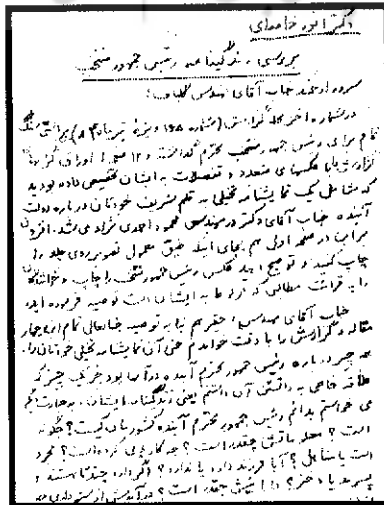 دکتر انور خامه‌ای
بررسی زندگینامه رئیس جمهور منتخب
سرور ارجمند جناب آقای مهندس
در شماره اخیر مجله گزارش (شماره ۱۶۸ ویژه تیر ماه ۸۴)
تمام برای رئیس جمهور منتخب محترم گذاشته و ۱۲ صفحه از اوراق گزارش
گزارش را با عکسهای متعدد و تفصیلات به ایشان تخصیص داده بودید
که شامل یک نمایشنامه تخیلی به قلم شریف خودتان درباره دولت
آینده جناب آقای دکتر و مهندس محمود احمدی نژاد می‌شد. افزون
بر این در صفحه اول هم بجای اینکه طبق معمول تصویر روی جلد را
چاپ کنید و توضیح دهید عکس رئیس جمهور منتخب را چاپ و خوانندگان
را به قرائت مطالبی که راجع به ایشان است توصیه فرموده اید.
جناب آقای مهندس، حقیر هم بنا به توصیه جنابعالی تمام این چهار
مقاله و گزارش را با دقت خواندم حتی آن نمایشنامه تخیلی خودتان را.
همه چیز درباره رئیس جمهور محترم آینده در آنها بود جز یک چیز که
علاقه خاصی به دانستن آن داشتم یعنی زندگینامه ایشان. به عبارت دیگر
می خواستم بدانم رئیس جمهور محترم آینده کشورمان کیست؟ چگونه
است؟ معلوماتش چقدر است؟ چه کارهایی کرده است؟ مجرد
است یا متاهل؟ آیا فرزند دارد یا ندارد؟ اگر دارد چند تا هستند و
پسرند یا دختر؟ دارائیش چقدر است؟ درآمدش از